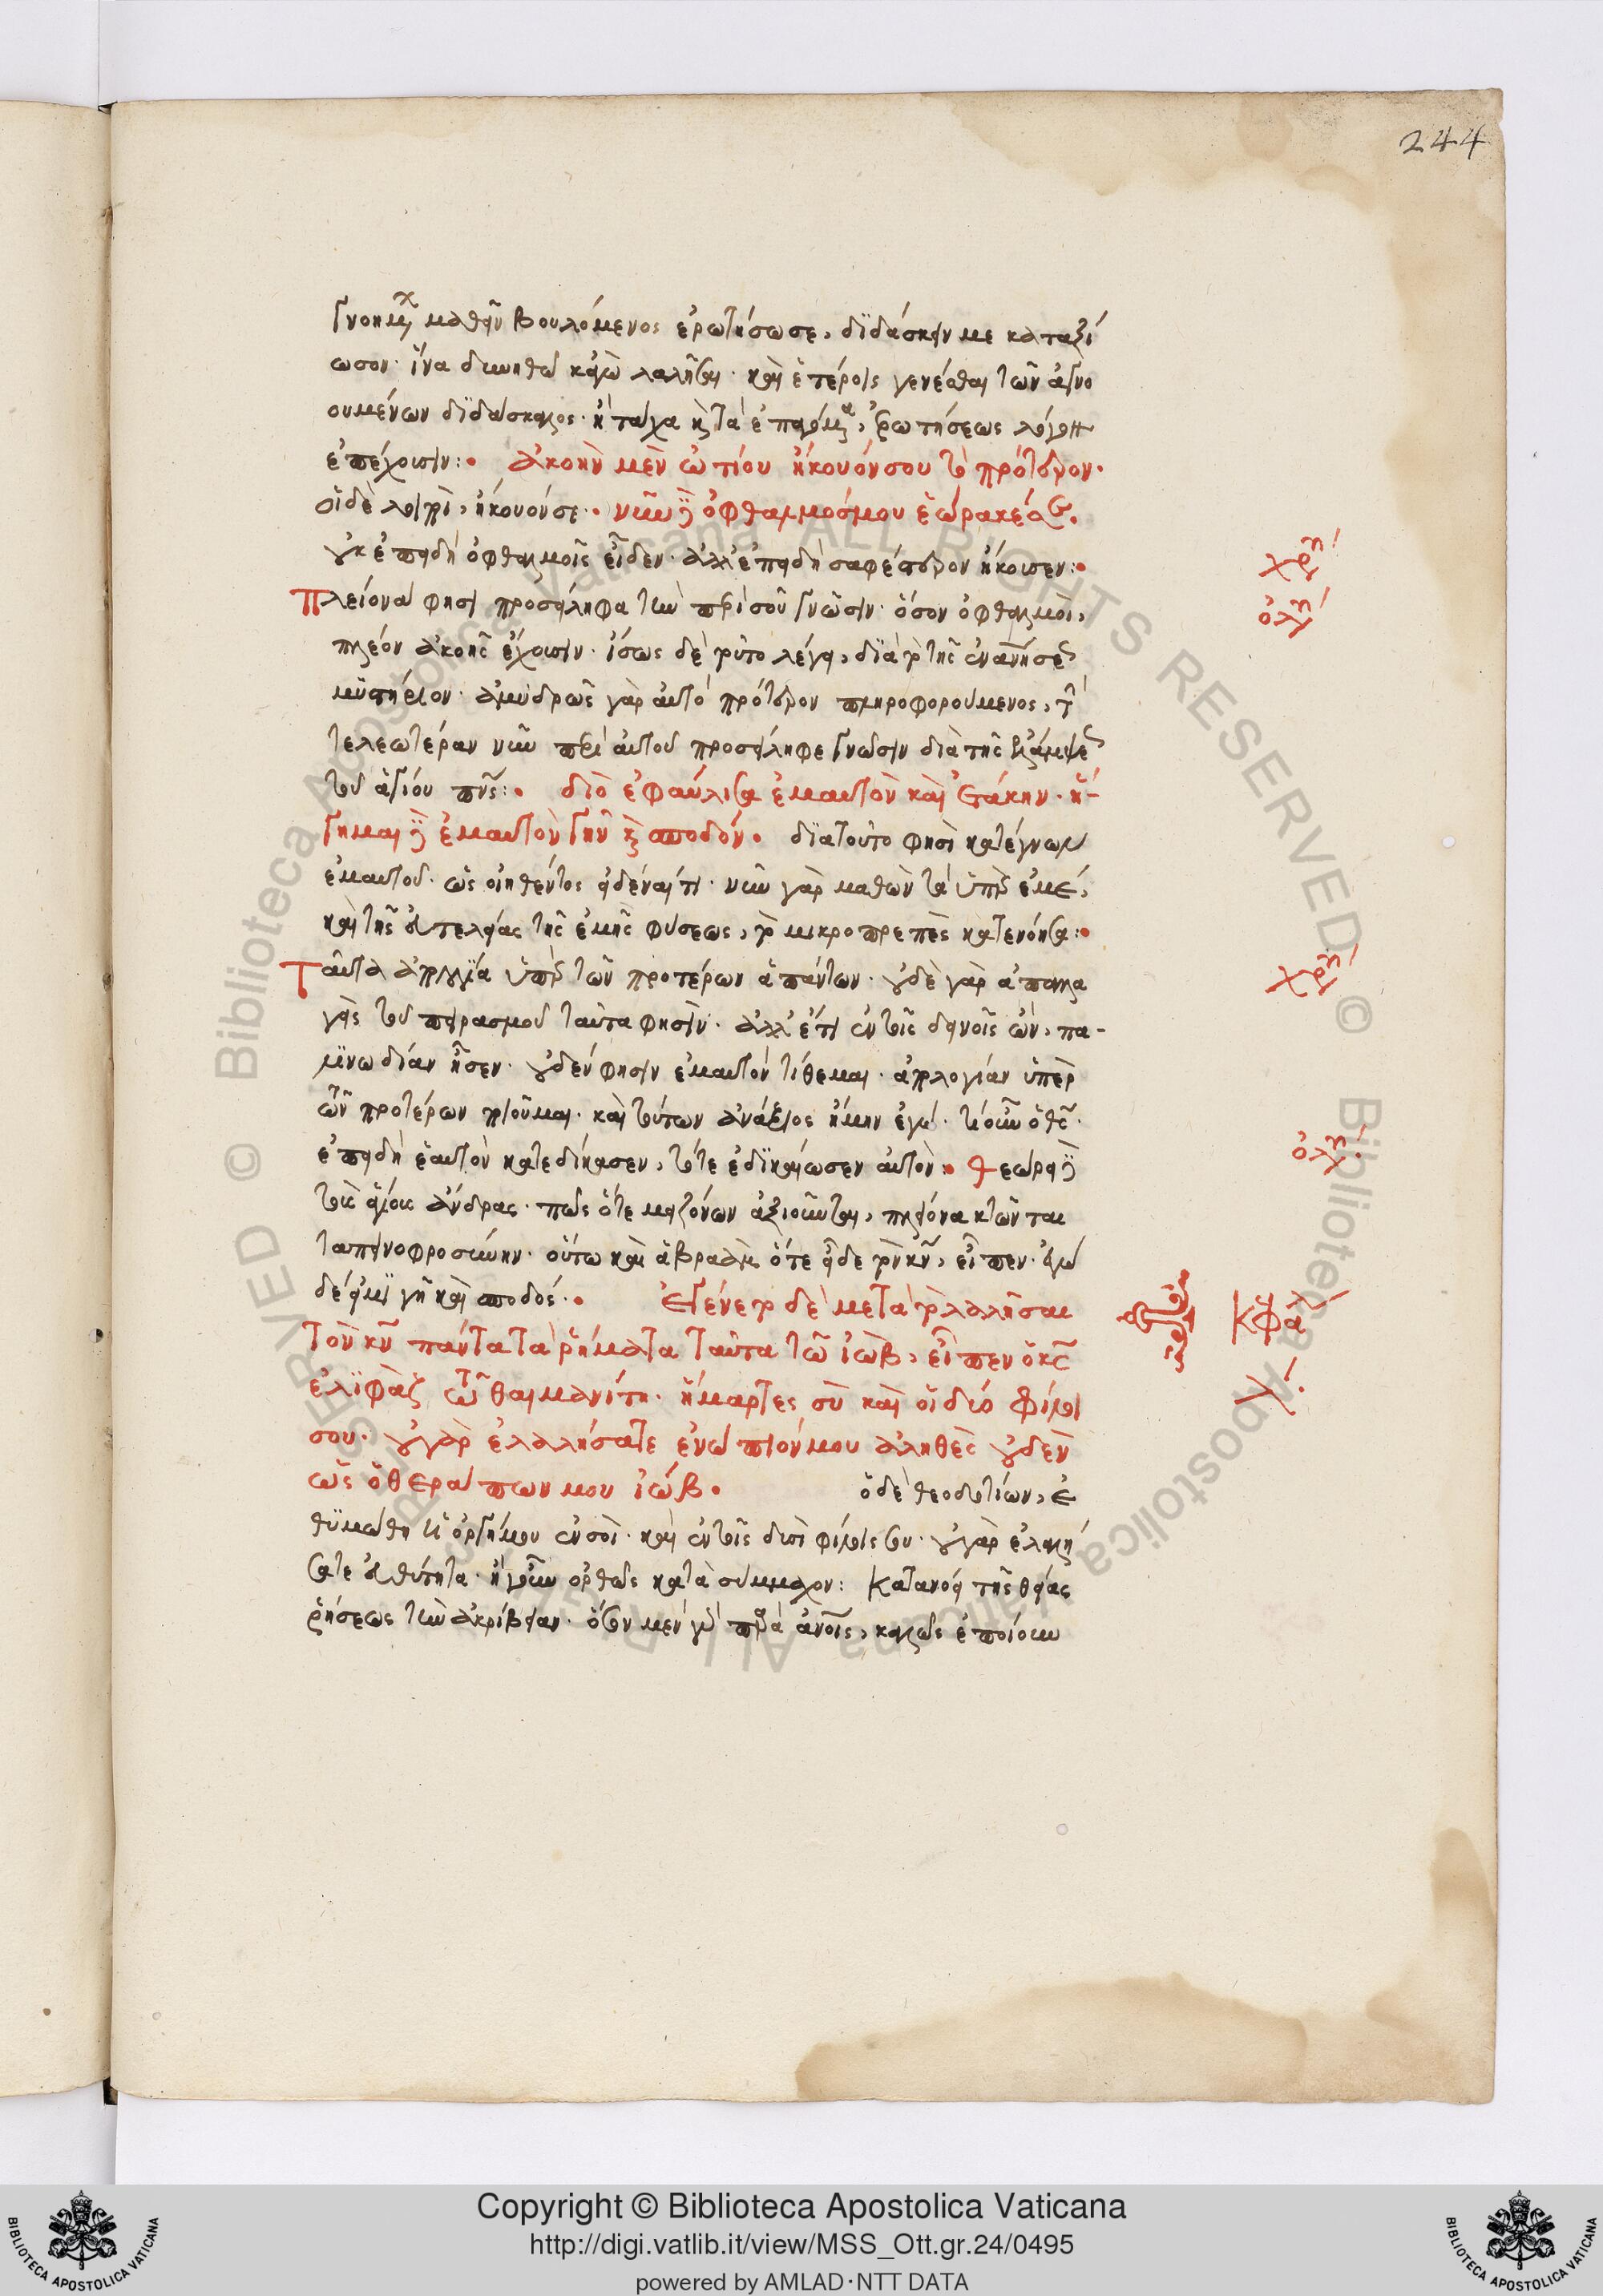 244
γνοημα μαθεῖν βουλόμενος ἐρωτήσω σε, διδάσκειν με καταξί
ωσον· ἵνα δυνηθῶ κἀγὼ λαλῆσαι· καὶ ἑτέροις γενέσθαι τῶν ἀγνο
ουμένων διδάσκαλος· ἢ τάχα καὶ τὰ ἐρωτήσεως λόγον
ἐπέχουσιν: ἀκοὴν μὲν ὠτίου ἤκουόν σου τὸ πρότερον·
οἱ δὲ λοιποὶ, ἤκουόν σε· νῦν δὲ ὀφθαλμός μου ἑώρακέ σε.
οὐκ ἐπειδὴ ὀφθαλμοῖς εἶδεν· ἀλλ' ἐπειδὴ σαφέστερον ἤκουσεν:
χρ
Πλείονα φησὶ προσείληφα τὴν περὶ σοῦ γνῶσιν· ὅσον ὀφθαλμοὶ,
ὀλ
πλέον ἀκοῆς ἔχουσιν· ἴσως δὲ τοῦτο λέγει, διὰ τὸ τῆς
μυστήριον· ἀμυδρῶς γὰρ αὐτὸ πρότερον πληροφορούμενος,
τελεωτέραν νῦν περὶ αὐτοῦ προσείληφε γνῶσιν διὰ τῆς ἐλλάμψε
τοῦ ἁγίου πνς: διὸ ἐφαύλισα ἐμαυτὸν καὶ ἐτάκην· ἥ-
γημαι δὲ ἐμαυτὸν γῆν καὶ σποδόν. διὰ τοῦτο φησὶ κατέγνων
ἐμαυτοῦ· ὡς οἰηθέντος εἰδέναι τί· νῦν γὰρ μαθὼν τὰ ὑπὲρ ἐμέ,
καὶ τῆς εὐτελείας τῆς ἐμῆς φύσεως, τὸ μικροπρεπὲς κατενόησα:
Ταῦτα ἀπολογία ὑπὲρ τῶν προτέρων ἁπάντων· οὐδὲ γὰρ ἀπαλλα
χρ
γεὶς τοῦ πειρασμοῦ ταῦτα φησὶν· ἀλλ' ἔτι ἐν τοῖς δεινοῖς ὢν, πα-
λινωδίαν ᾖσεν· οὐδέν φησιν ἐμαυτὸν τίθεμαι· ἀπολογίαν ὑπὲρ
τῶν προτέρων ποιοῦμαι· καὶ τούτων ἀνάξιος ἤμην ἐγώ· τί οὖν ὁ θς·
ἐπειδὴ ἑαυτὸν κατεδίκασεν, τότε ἐδικαίωσεν αὐτὸν· Θεώρει δὲ
ὀλ
τοὺς ἁγίους ἄνδρας· πῶς ὅτε μειζόνων ἀξιοῦνται, πλείονα κτῶνται
ταπεινοφροσύνην· οὕτω καὶ ἁβραὰμ ὅτε εἶδε τὸν κν, εἶπεν· ἐγὼ
δέ εἰμι γῆ καὶ σποδός· Ἐγένετο δὲ μετὰ τὸ λαλῆσαι
ΚΦαλ
τὸν κν πάντα τὰ ῥήματα ταῦτα τῷ ἰώβ, εἶπεν ὁ κς
ἐλιφὰζ τῷ θαιμανίτῃ· ἥμαρτες σὺ καὶ οἱ δύο φίλοι
σου· οὐ γὰρ ἐλαλήσατε ἐνώπιόν μου ἀληθὲς οὐδὲν
ὡς ὁ θεράπων μου ἰώβ. ὁ δὲ θεοδοτίων, ἐ
θυμώθη ἡ ὀργή μου ἐν σοὶ· καὶ ἐν τοῖς δυσὶ φίλοις σου· οὐ γὰρ ἐλαλή
σατε εὐθύτητα· ἢ γοῦν ὀρθῶς κατὰ σύμμαχον: Κατανόει τῆς θείας
ῥήσεως τὴν ἀκρίβειαν· ὅσον μὲν γὰρ παρὰ ἀνοις, καλῶς ἐποίουν
Copyright © Biblioteca Apostolica Vaticana
http://digi.vatlib.it/view/MSS_Ott.gr.24/0495
powered by AMLAD·NTT DATA
BIBLIOTECA APOSTOLICA VATICANA
BIBLIOTECA APOSTOLICA VATICANA
© Biblioteca Apostolica Vaticana ALL RIGHTS RESERVED
© Biblioteca Apostolica Vaticana ALL RIGHTS RESERVED